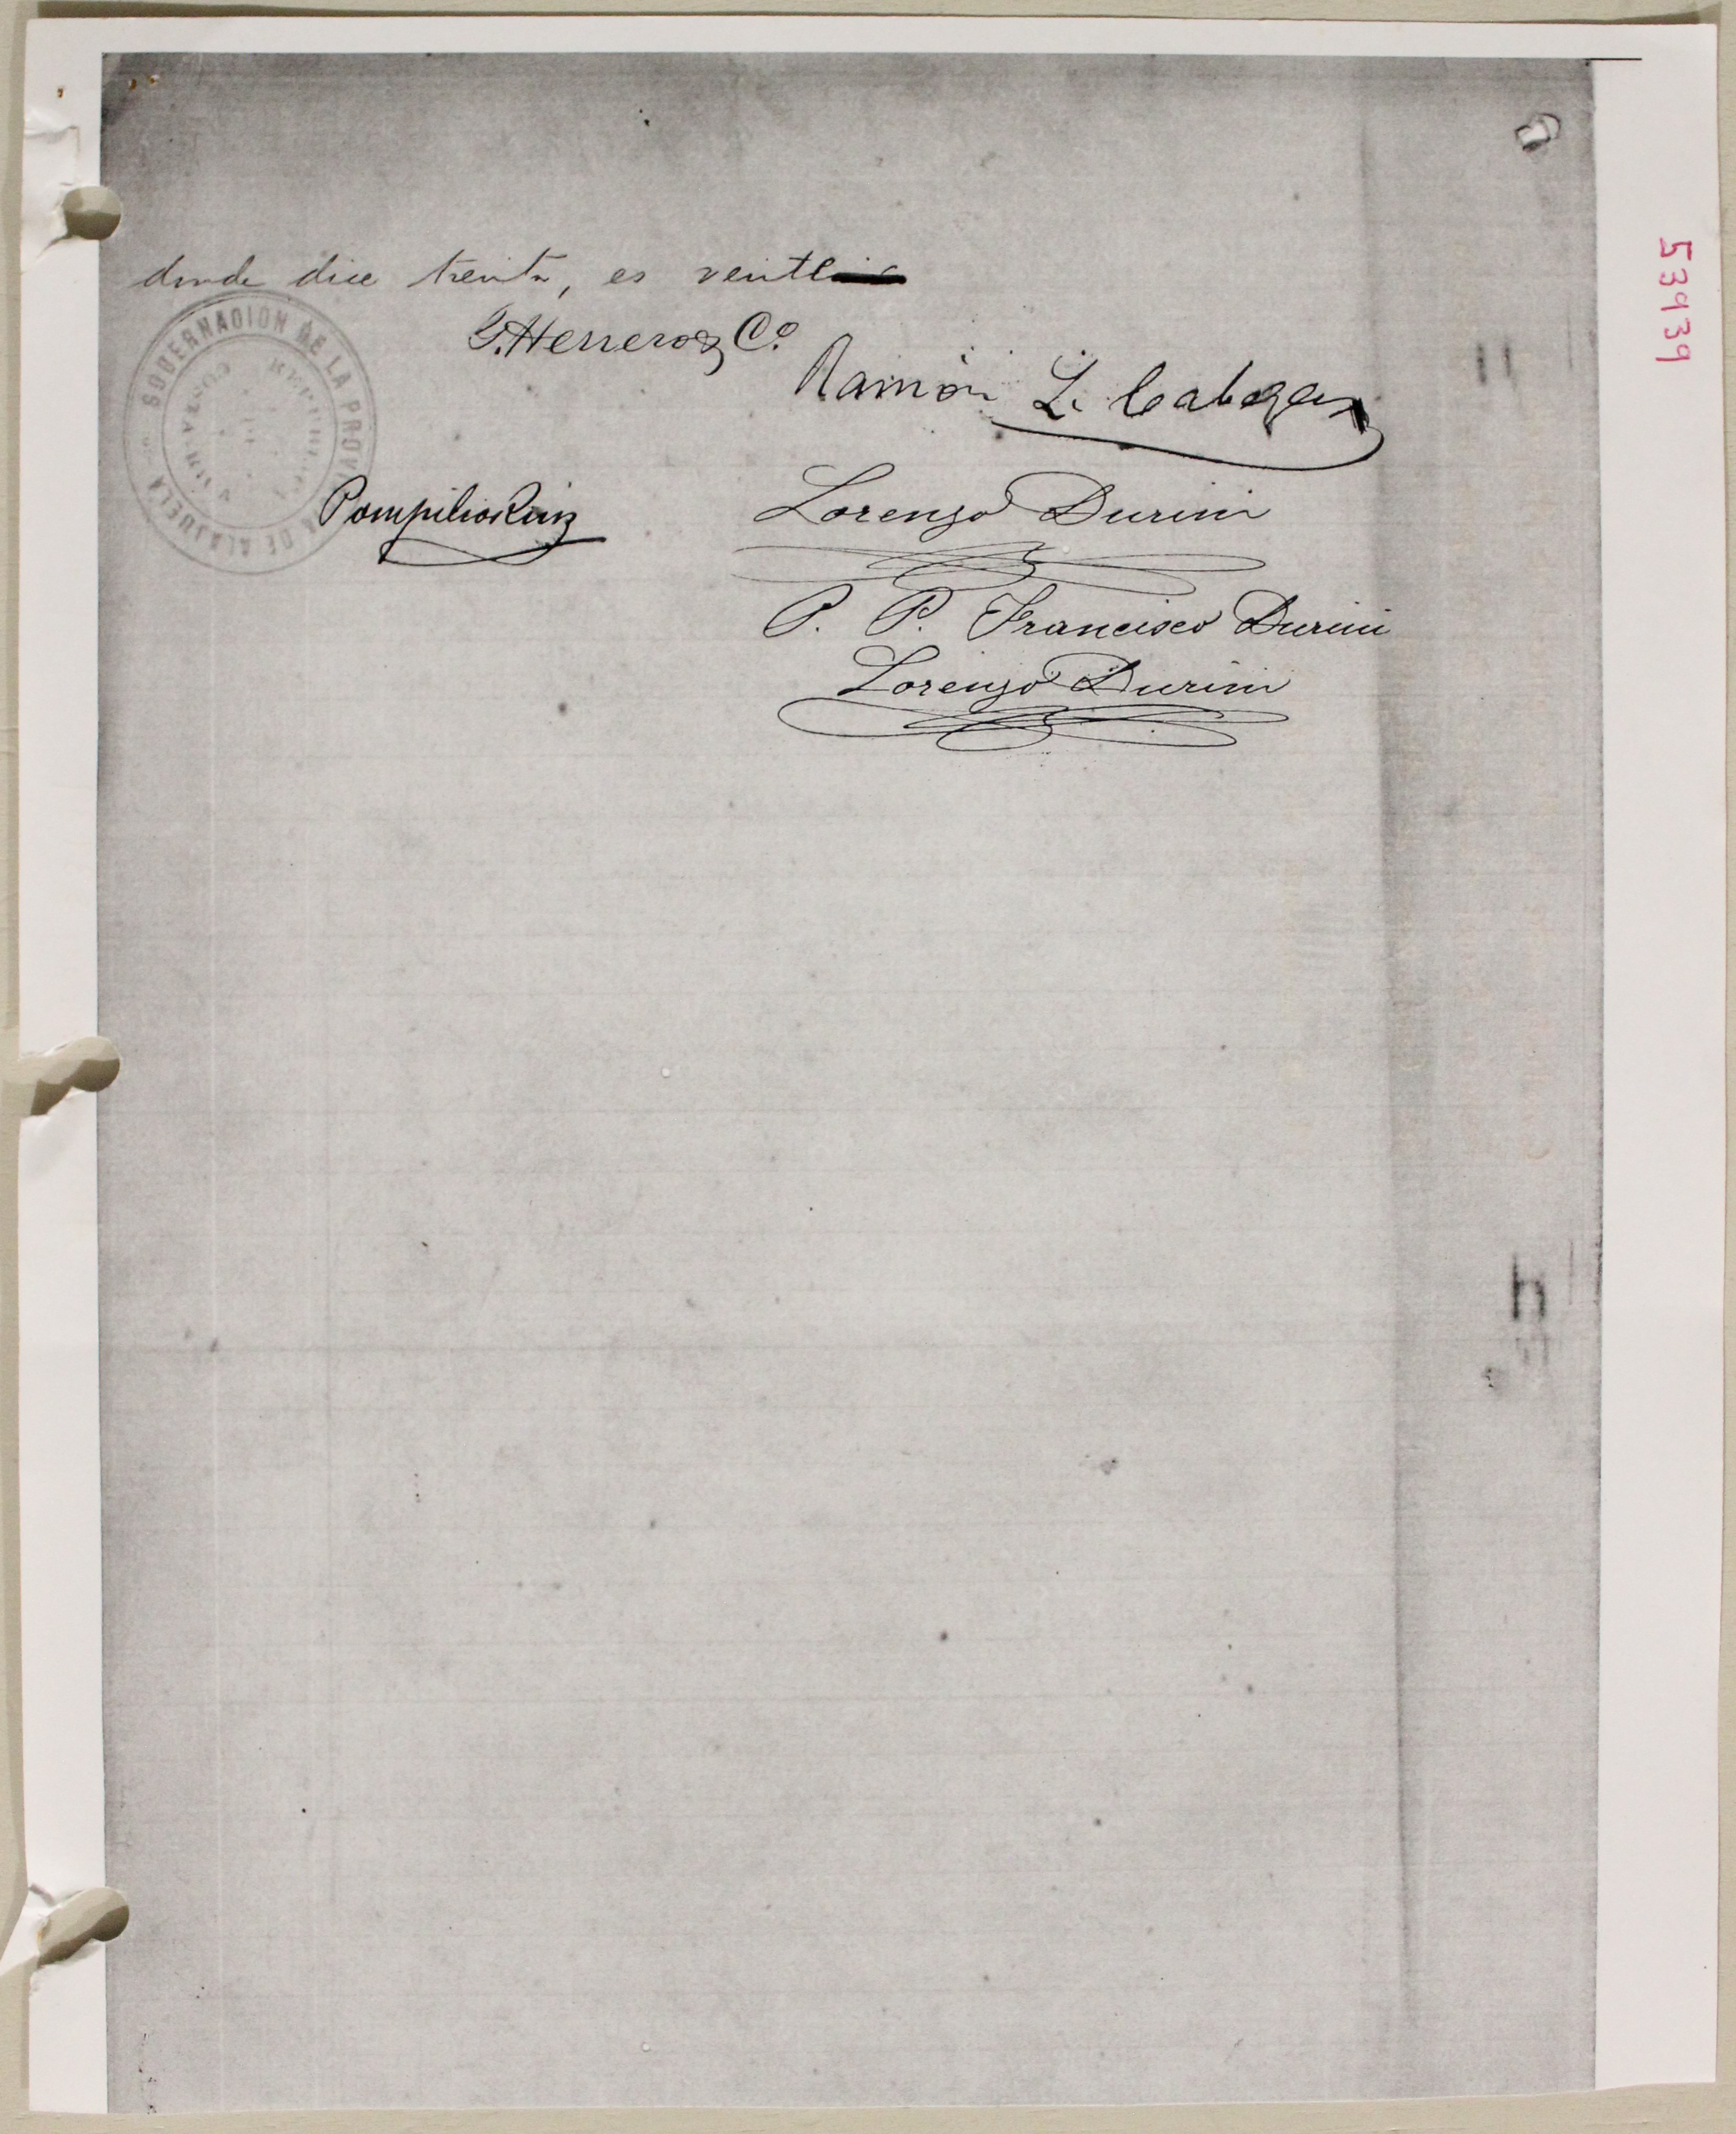 donde dice treinta, es veinte
J. Herrero & Co.
Ramón L. Cabezas
GOBERNACION DE LA PROV DE ALAJUELA
Pompilio Ruiz
Lorenzo Durini
P. P. Francisco Durini
Lorenzo Durini
53939